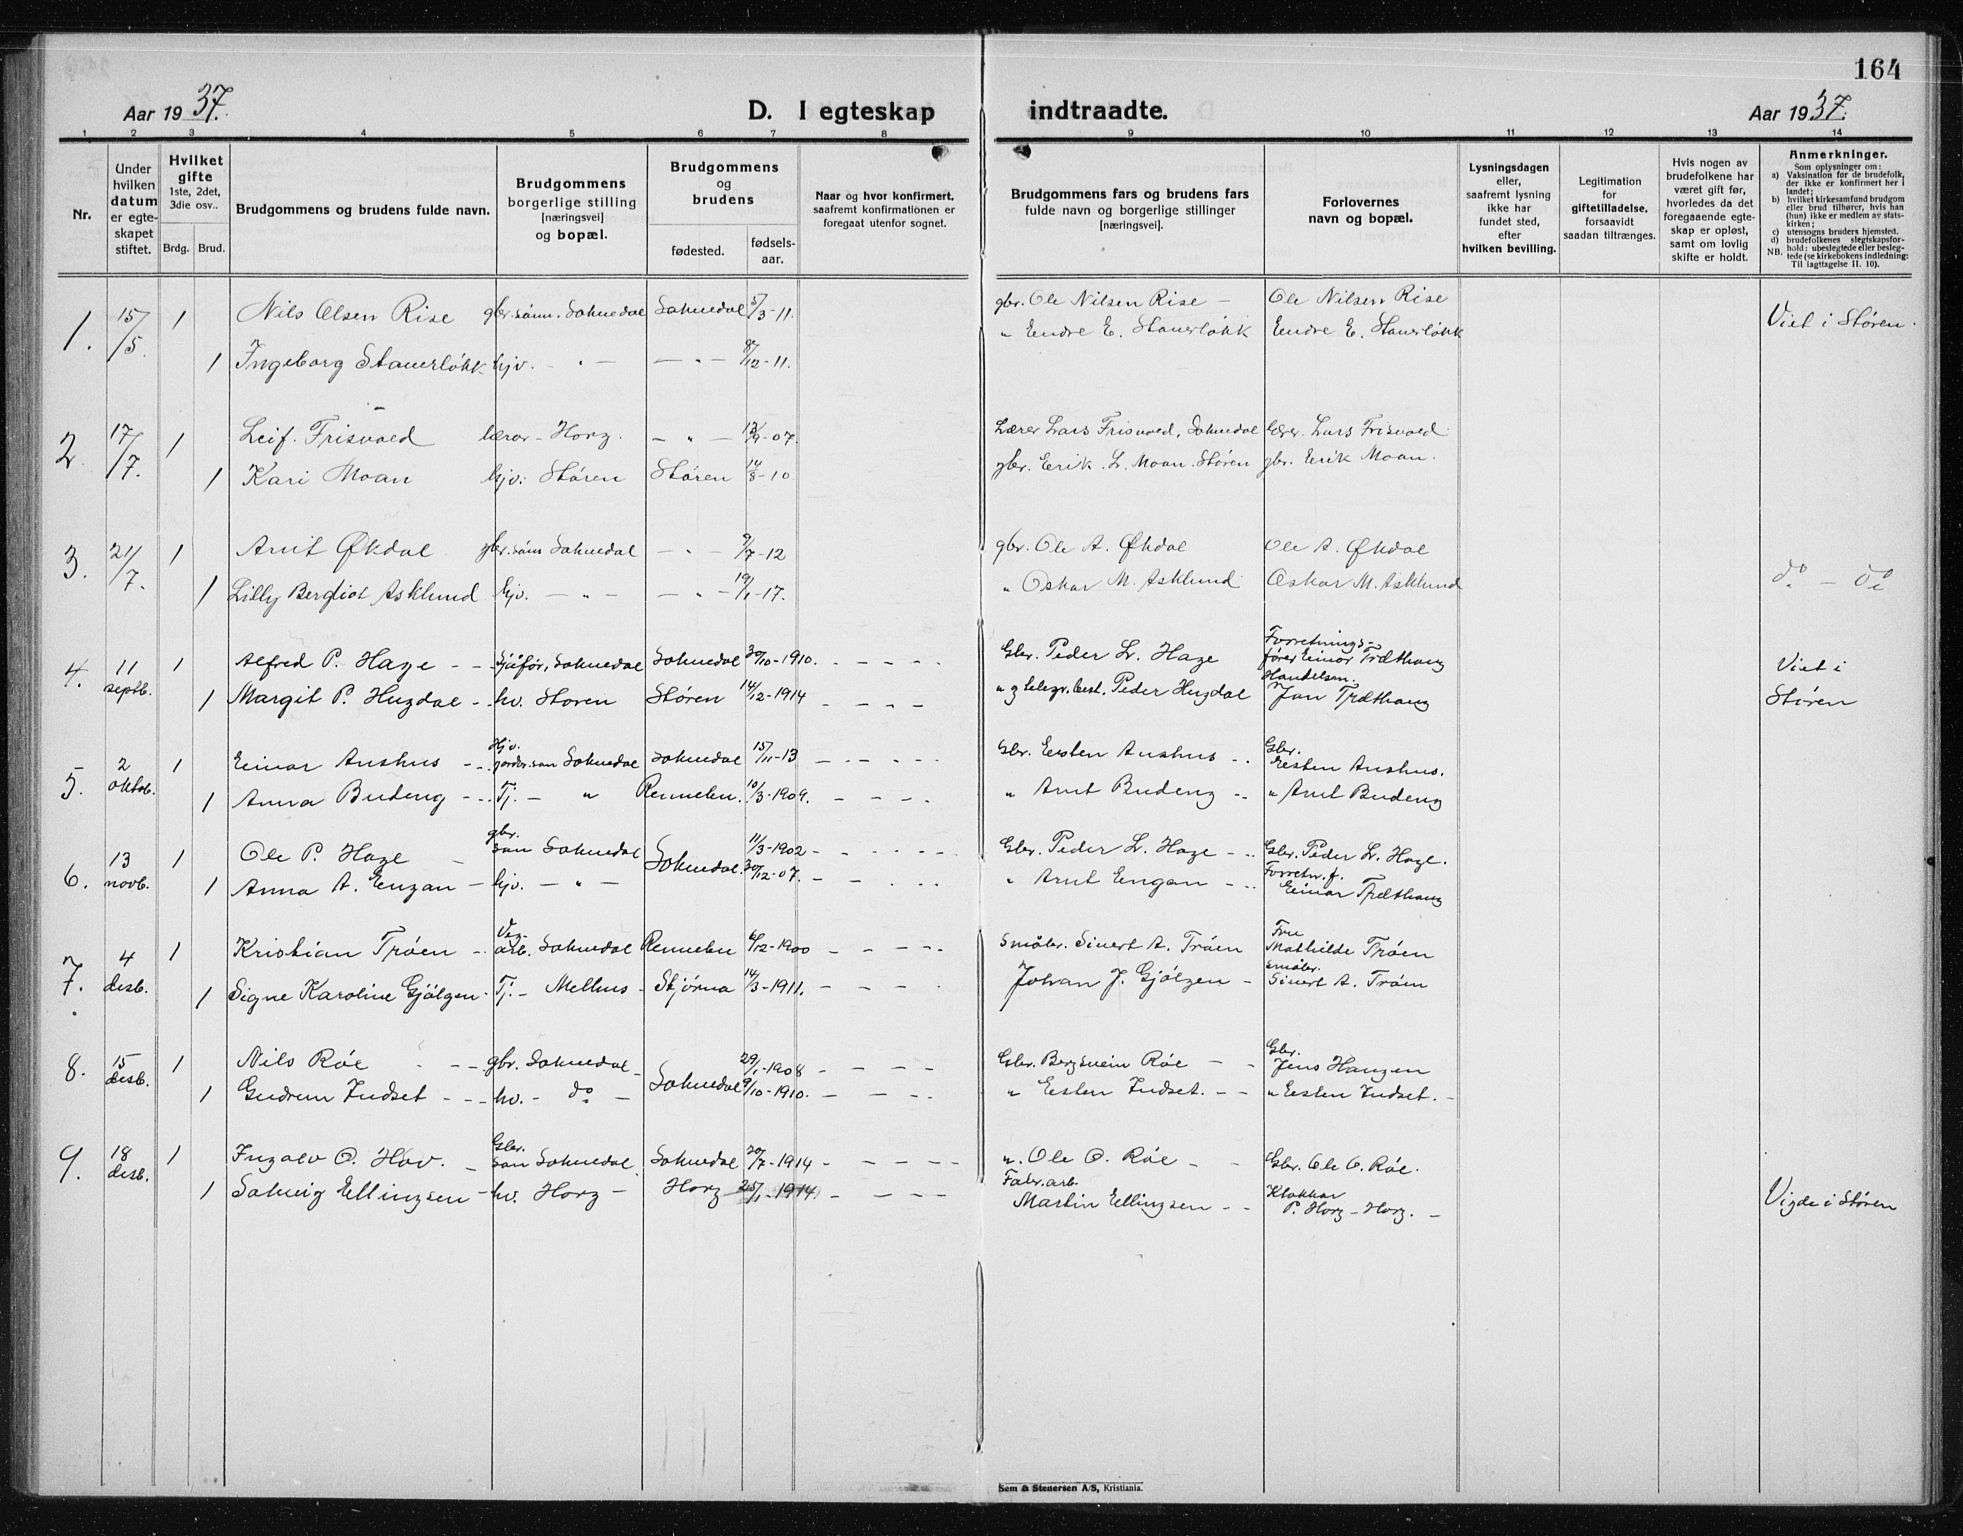 164
Aar 1937.
D. I egteskap
indtraadte.
Aar 1937.
1 2 3 4 5 6 7 8 9 10 11 12 13 14
Nr.
Under hvilken datum er egteskapet stiftet.
Hvilket gifte 1ste, 2det, 3die osv..
Brdg. Brud.
Brudgommens og brudens fulde navn.
Brudgommens borgerlige stilling [næringsvei] og bopæl.
Brudgommens og brudens
fødested. fødselsaar.
Naar og hvor konfirmert, saafremt konfirmationen er foregaat utenfor sognet.
Brudgommens fars og brudens fars fulde navn og borgerlige stillinger [næringsvei].
Forlovernes navn og bopæl.
Lysningsdagen eller, saafremt lysning ikke har fundet sted, efter hvilken bevilling.
Legitimation for giftetilladelse, forsaavidt saadan tiltrænges.
Hvis nogen av brudefolkene har været gift før, hvorledes da det foregaaende egteskap er opløst, samt om lovlig skifte er holdt.
Anmerkninger.
Som oplysninger om:
a) Vaksination for de brudefolk, der ikke er konfirmert her i landet;
b) hvilket kirkesamfund brudgom eller brud tilhører, hvis han (hun) ikke er medlem av statskirken;
c) utensogns bruders hjemsted.
d) brudefolkenes slegtskapsforhold: ubeslegtede eller beslegtede (se kirkebokens indledning: NB. Til iagttagelse II. 10).
1. 15/5. 1 Nils Olsen Rise gbr.sønn. Soknedal Soknedal 5/3-11. gbr. Ole Nilsen Rise – Ole Nilsen Rise Viet i Støren.
1 Ingeborg Stauerløkk hjv. – " – – " – 8/12-11. " Endre E. Stauerløkk Endre E. Stauerløkk
2 17/7. 1 Leif. Frisvold lærer – Horg. – " – 13/9-07. Lærer Lars Frisvold, Soknedal lærer. Lars Frisvold
1 Kari Moan hjv. Støren Støren 14/8-10 gbr. Erik. L. Moan. Støren gbr. Erik Moan.
3. 21/7. 1 Arnt Økdal gbr.sønn Soknedal – " – 9/7-12 gbr. Ole A. Økdal Ole A. Økdal
1 Lilly Bergliot Asklund hjv. – " – – " – 19/1-17. " Oskar M. Asklund Oskar M. Asklund do – do
4. 11 septb. 1 Alfred P. Hage – – Sjåfør, Soknedal Soknedal 30/10-1910. – – – – Gbr. Peder L. Hage Forretningsfører Einar Træthaug Viet i Støren
1 Margit P. Hugdal – hv. Støren Støren 14/12-1914 – – – – " g telegr.best. Peder Hugdal Handelsm. Jan Træthaug
5. 2 oktob. 1 Einar Aushus – – Soknedal Soknedal 15/11-13 – – – – – Gbr. Eesten Aushus – . Gbr. Eesten Aushus.
1 Anna Budeng – – Tj. – " Rennebu. 10/3-1909. – – – – " Arnt Budeng – . " Arnt Budeng
6. 13 novb. 1 Ole P. Hage – gbr. søn Soknedal Soknedal. 11/3-1902 – – – – – Gbr. Peder L. Hage – . Gbr. Peder L. Hage.
1 Anna A. Engan – hjv. – " – 30/12-07. – – – – " Arnt Engan – . Forretn.f. Einar Træthaug
7. 4 desb. 1 Kristian Trøen – Veg-arb. Soknedal Rennebu 6/12-1900 – – – – Småbr. Sivert A. Trøen Fru Mathilde Trøen
1 Signe Karoline Gjølgen. Tj. – Melhus – Stjørna 14/3-1911. – – – – Johan J. Gjølgen – småbr. Sivert A. Trøen
8. 15 desb. 1 Nils Røe – – gbr. Soknedal – Soknedal 29/1-1908 – – – – Gbr. Bergsvein Røe – – Gbr. Jens Haugen
1 Gudrun Indset – – – hv. – do – 9/10-1910. – – – – " Eesten Indset. – – " Eesten Indset. –
9. 18 desb. 1 Ingolv O. Hov. – Gbr. søn Soknedal Soknedal 20/7-1914 – – – – – ". Ole O. Røe – – Gbr. Ole O. Røe.
1 Solveig Ellingsen – hv. Horg – Horg 25/1-1914. – – – – Fabr.arb. Martin Ellingsen – – Klokkar P. Horg – Horg. – Vigde i Støren
Sem & Stenersen A/S, Kristiania.